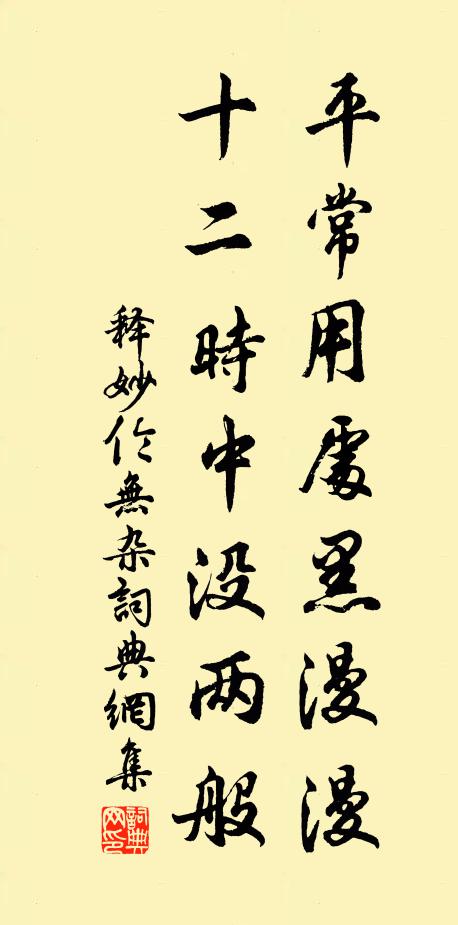 平常用處黑漫漫
十二時中没两般
释妙伦無杂詞典網集
詞典网印